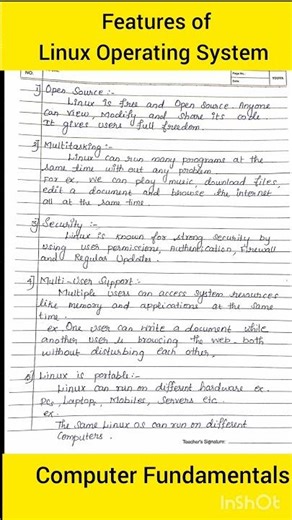 Features of
Linux Operating System
NO:
Page No.
Date
1) Open Source :-
Linux is free and Open Source. Anyone
can view, Modify and Share its code.
It gives users full freedom.
2) Multitasking :-
Linux can run many programs at the
same time with out any problem.
For ex. We can play music, download files,
edit a document and browse the internet
all at the same time.
3) Security :-
Linux is known for strong security by
using user permissions, Authentication, Firewall
and Regular Updates.
4) Multi-User Support :-
Multiple users can access system resources
like memory and applications at the same
time.
ex. One user can write a document while
another user is browsing the web both
without disturbing each other.
5) Linux is portable :-
Linux can run on different hardware ex.
PCs, Laptop, Mobiles, Servers etc.
ex.
The same Linux OS can run on different
Computers.
Teacher's Signature:
Computer Fundamentals
InShOt